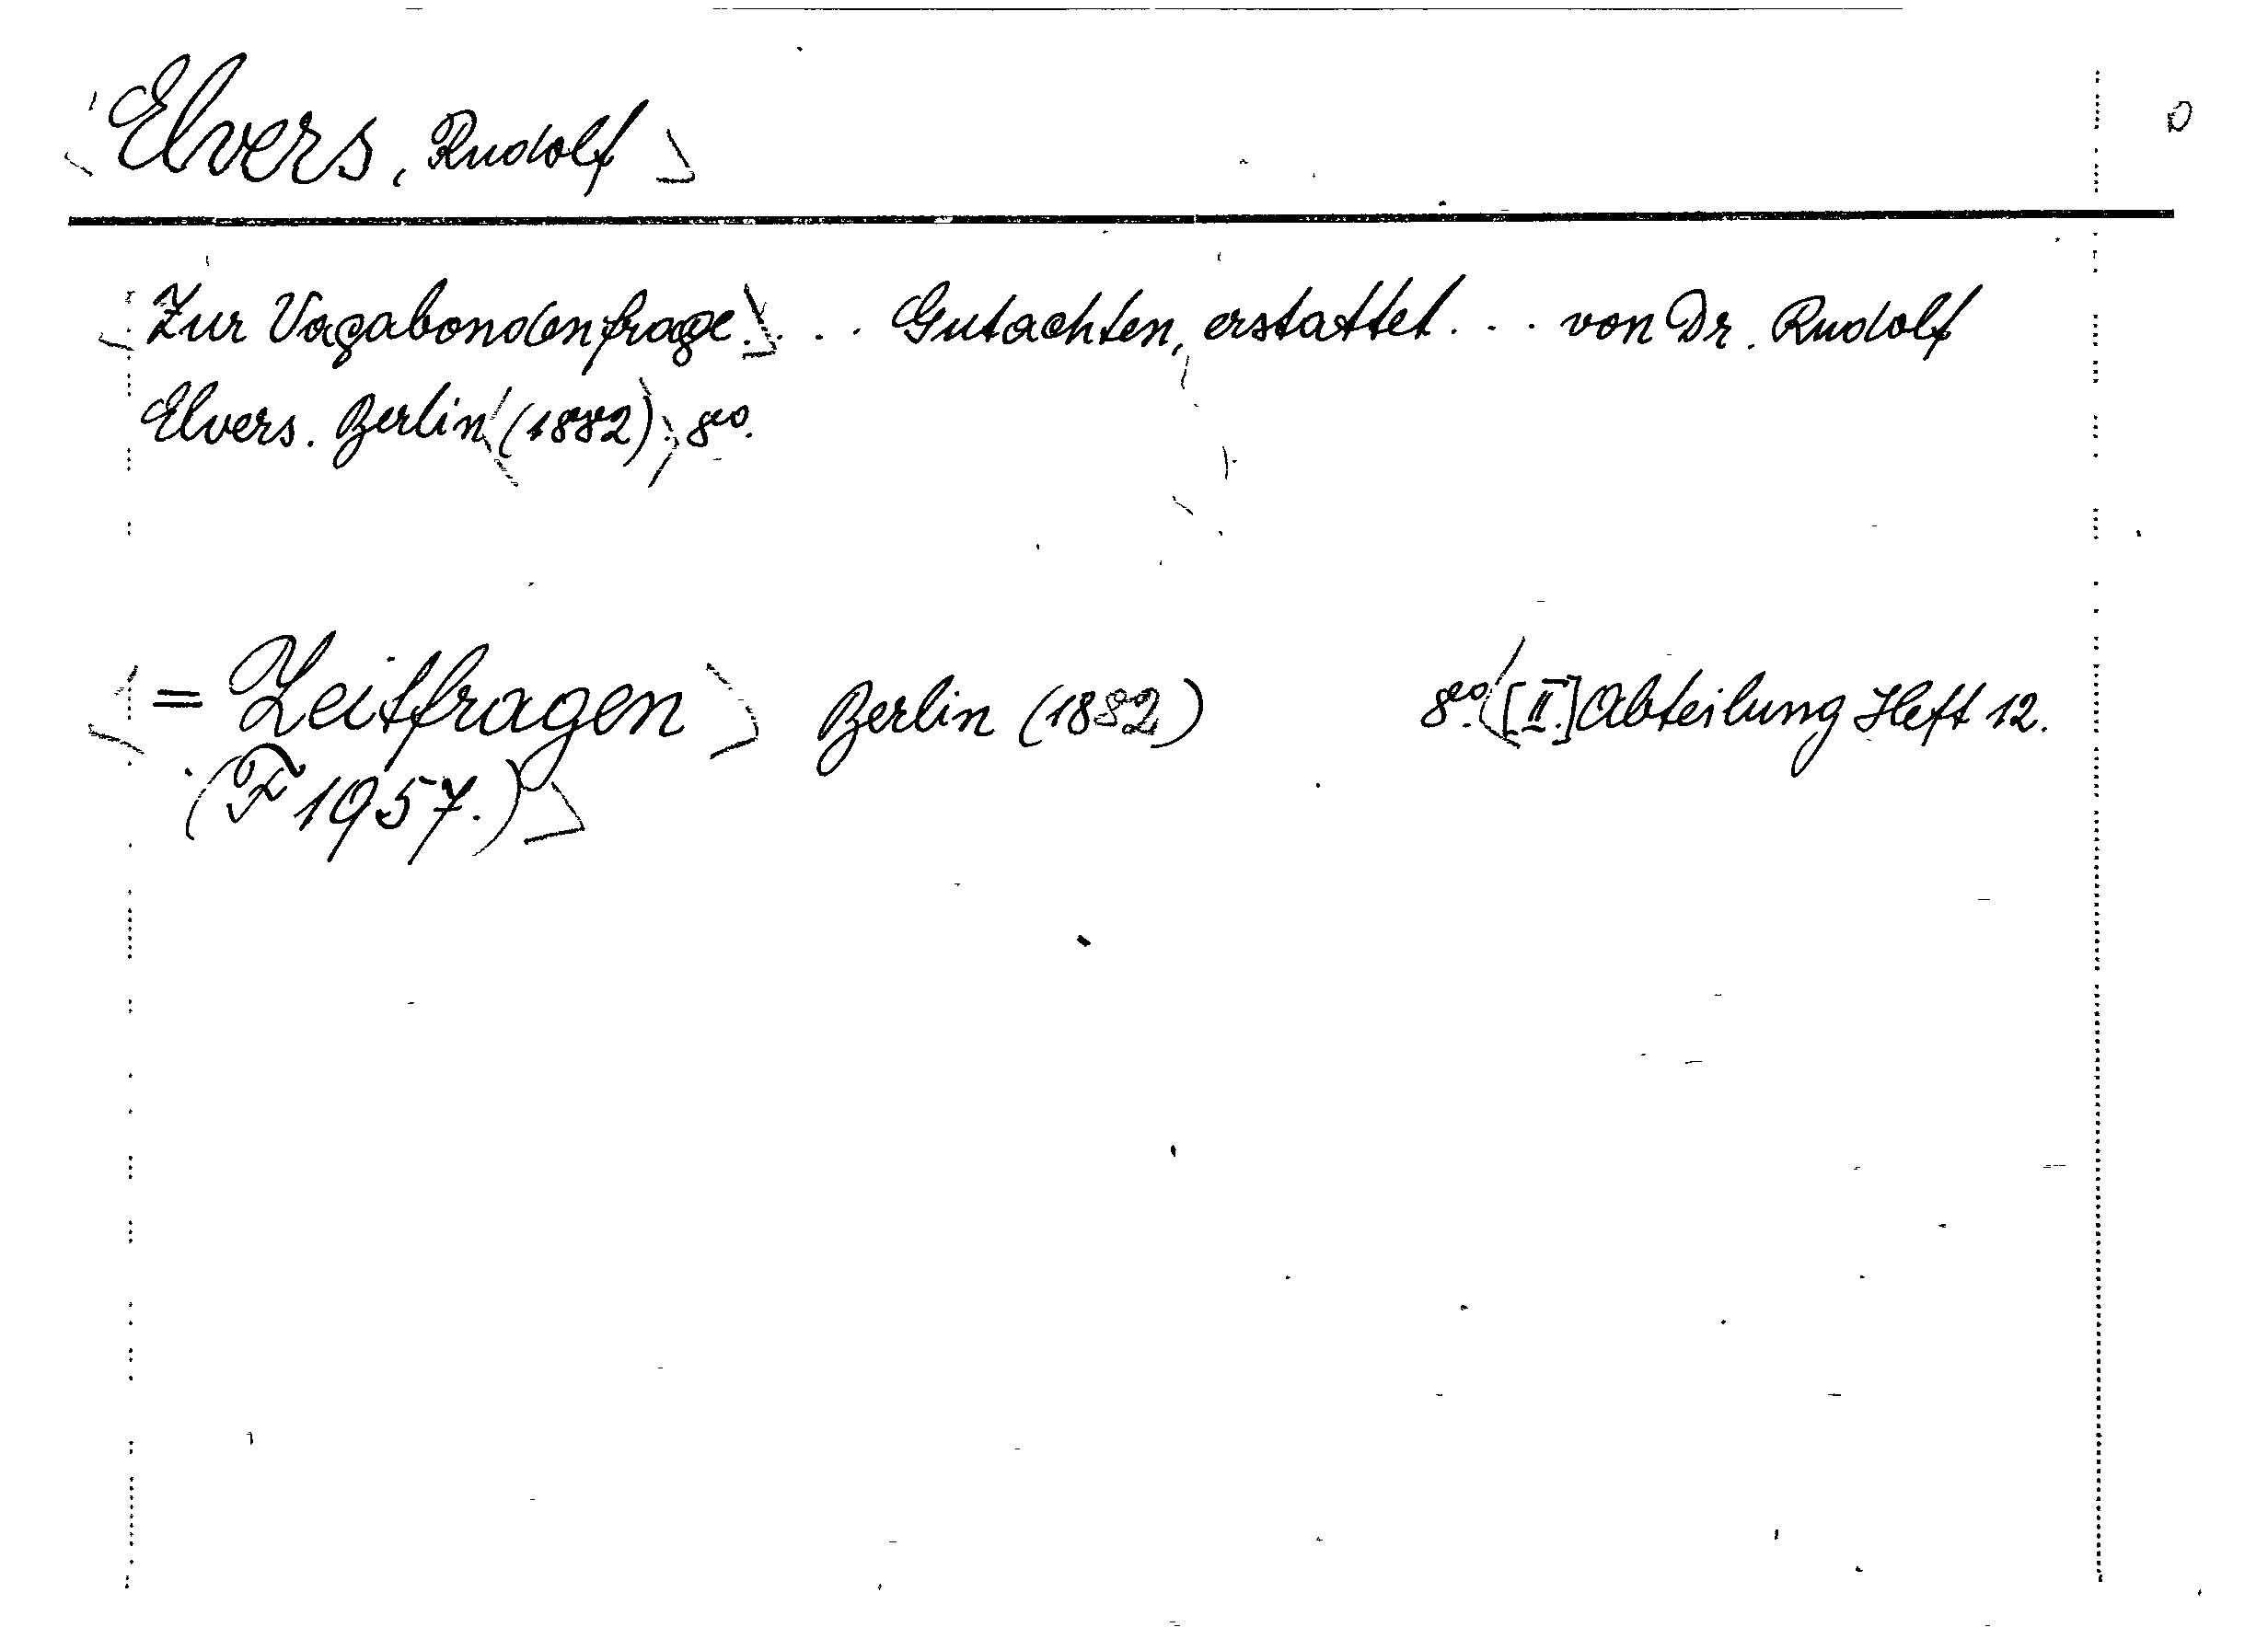 <Elvers, Rudolf> D
<Zur Vagabondenfrage> ... Gutachten, erstattet ... von Dr. Rudolf
Elvers. Berlin <(1882)> 8vo.
<= Zeitfragen> Berlin (1882) 8vo. <[II.] Abteilung Heft 12.
(F 1957.)>